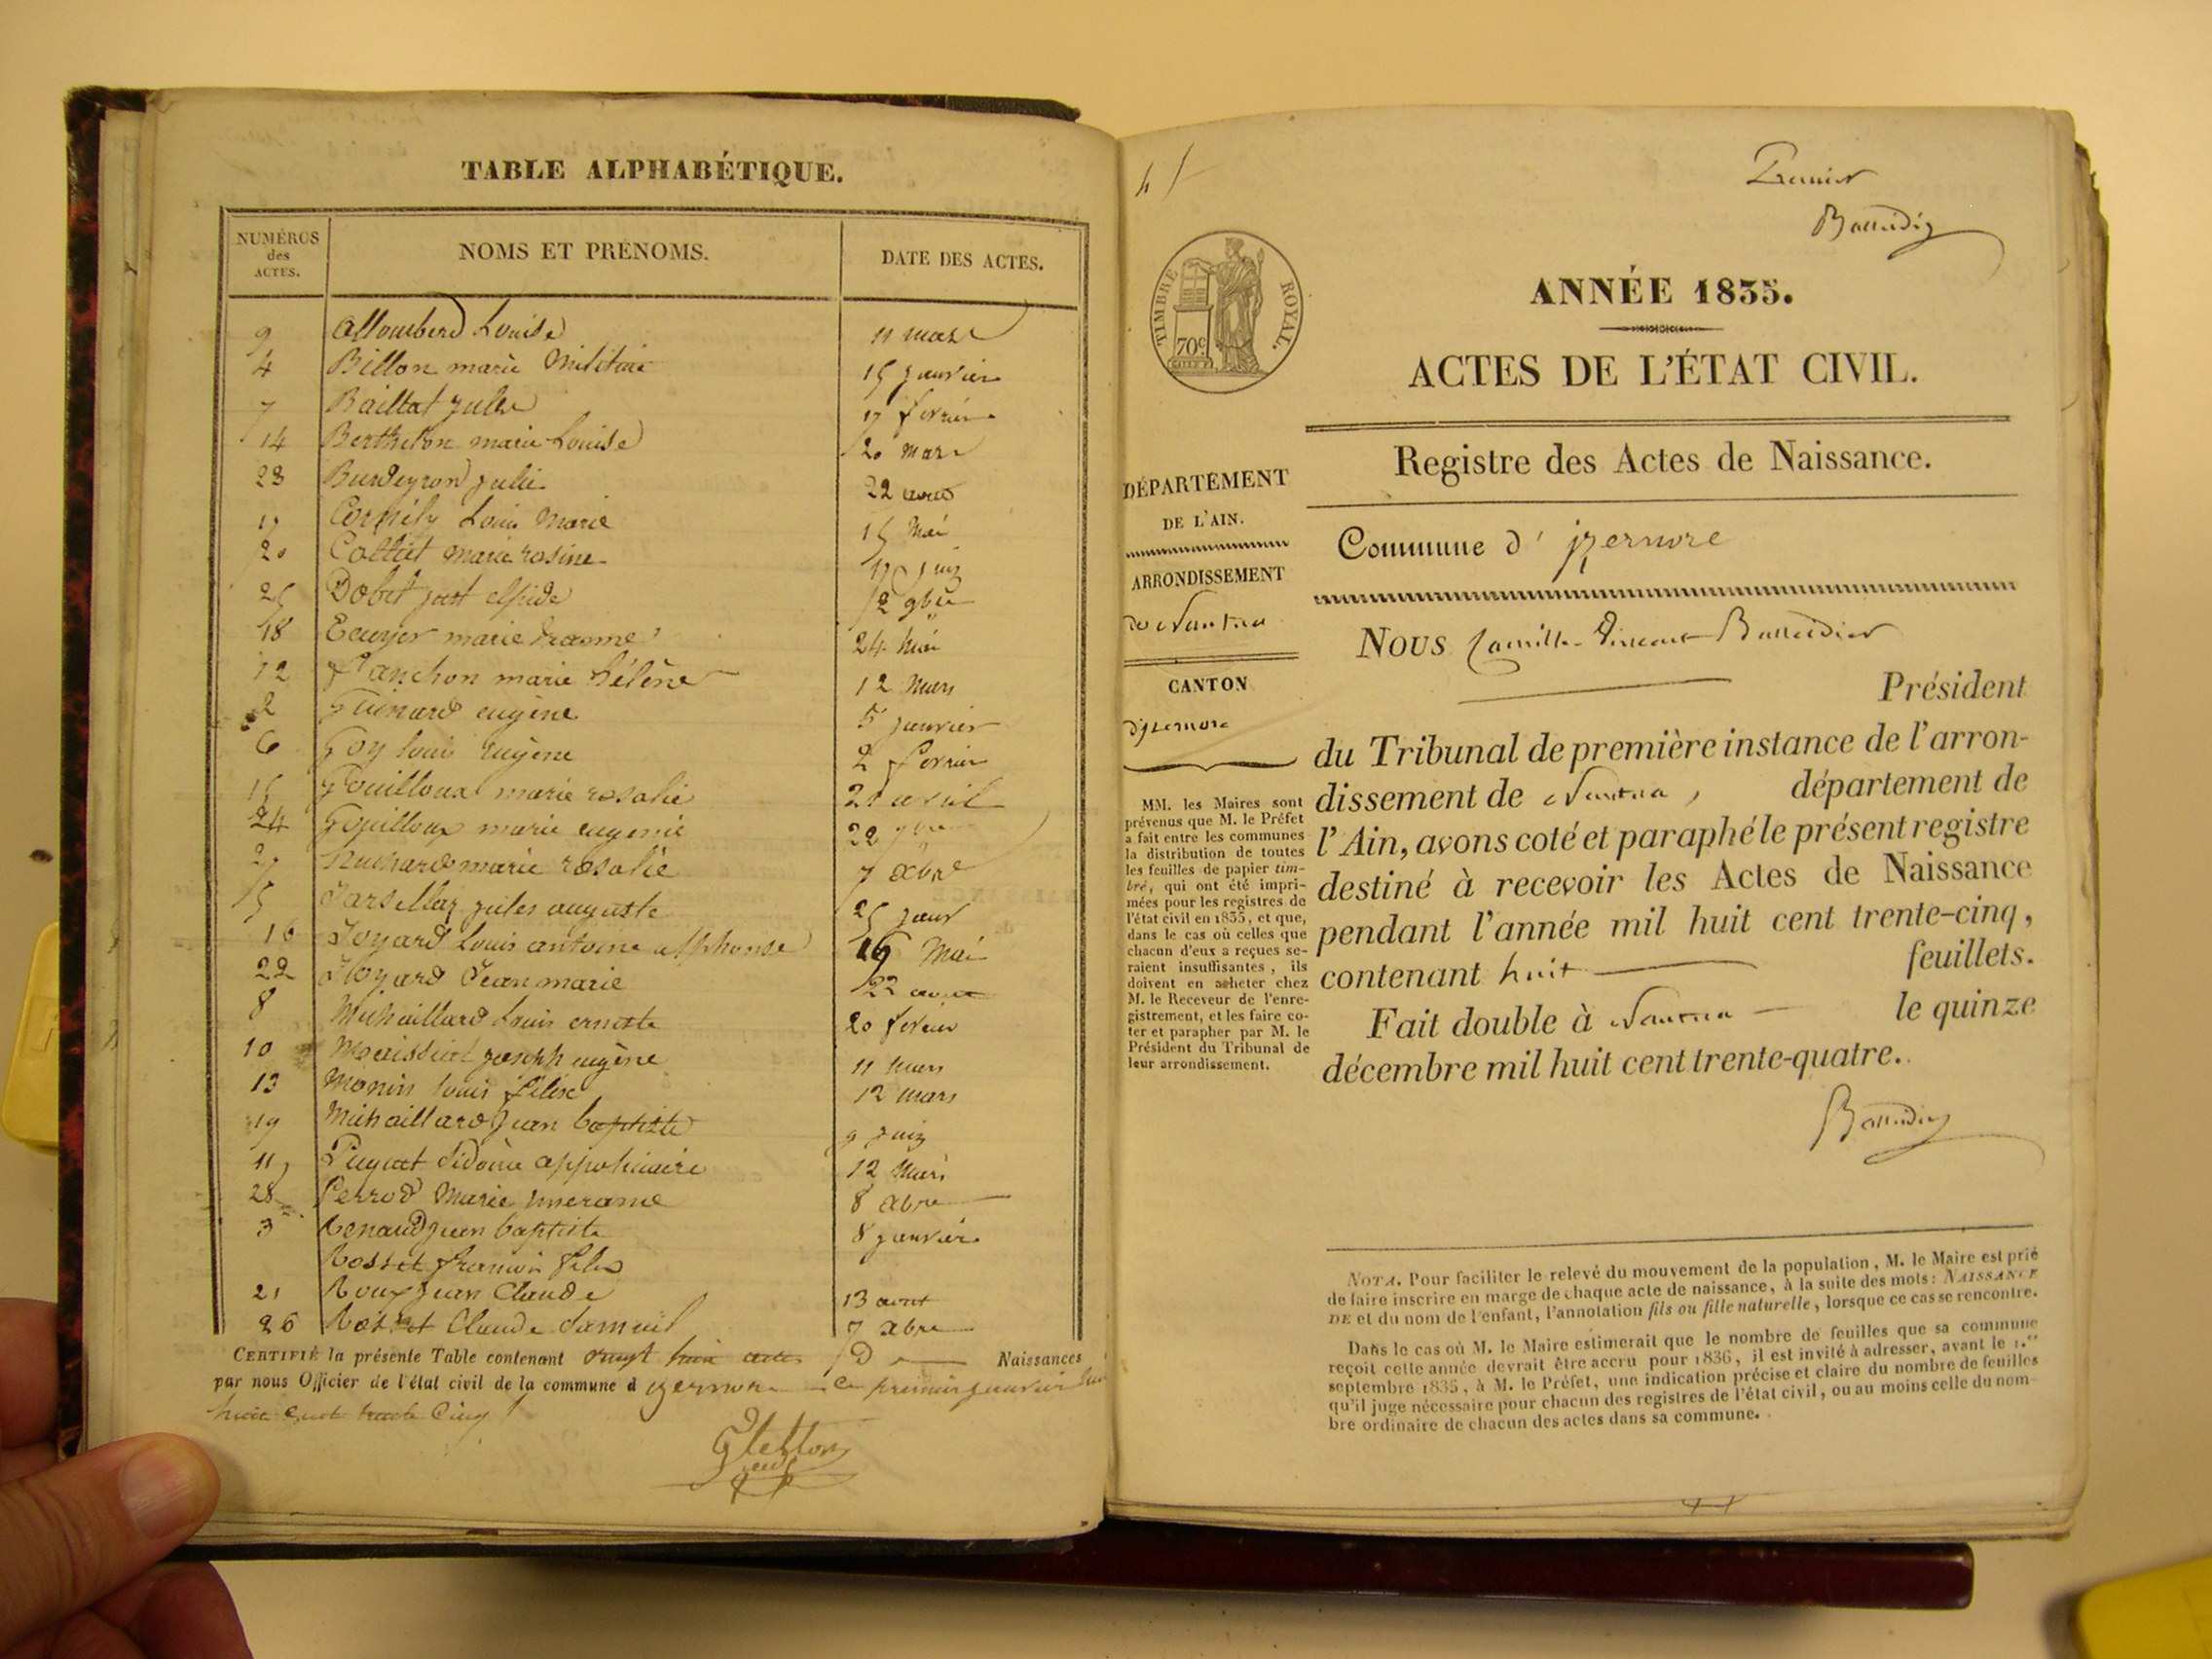 TABLE ALPHABÉTIQUE.
NUMÉROS
des
ACTES.
NOMS ET PRÉNOMS.
DATE DES ACTES.
9 Allombert Louise 11 mars
4 Billon marie 15 janvier
7 Baillat jules 17 fevrier
14 Berthelon marie Louise 20 mars
23 Burdeyron julie 22 aout
17 Louis Marie 15 Mai
20 Collet marie rosine 10 juin
25 Dobet just elpide 2 9bre
18 Ecuyer marie 24 Mai
12 marie hélène 12 Mars
2 Guinard eugène 5 janvier
6 Goy louis eugène 2 fevrier
15 Gouilloux marie rosalie 21 avril
24 Gouilloux marie eugenie 22 9bre
27 marie rosalie 7 Xbre
5 jules auguste 25 janv
16 Joyard Louis antoine alphonse 16 Mai
22 Joyard Jean marie 22 aout
8 Michaillard Louis erneste 20 fevrier
10 joseph eugène 11 Mars
13 Monin louis félix 12 mars
19 Michaillard Jean baptiste 9 juin
11 Puget Sidoine appolinaire 12 Mars
28 Perrod Marie 8 Xbre
3 Renaud jean baptiste 8 janvier
Rosset félix
21 Roux Jean Claude 13 aout
26 Rosset Claude Samuel 7 Xbre
CERTIFIÉ la présente Table contenant vingt huit actes D Naissances
par nous Officier de l'état civil de la commune d izernore ce premier janvier
huit cent trente Cinq
Premier
Balleidier
TIMBRE ROYAL.
70c
ANNÉE 1835.
ACTES DE L'ÉTAT CIVIL.
Registre des Actes de Naissance.
DÉPARTEMENT
DE L'AIN.
ARRONDISSEMENT
de Nantua
CANTON
d'izernore
MM. les Maires sont
prévenus que M. le Préfet
a fait entre les communes
la distribution de toutes
les feuilles de papier tim-
bré, qui ont été impri-
mées pour les registres de
l'état civil en 1835, et que,
dans le cas où celles que
chacun d'eux a reçues se-
raient insuffisantes, ils
doivent en acheter chez
M. le Receveur de l'enre-
gistrement, et les faire co-
ter et parapher par M. le
Président du Tribunal de
leur arrondissement.
Commune d' izernore
NOUS Camille Vincent Balleidier
Président
du Tribunal de première instance de l'arron-
dissement de Nantua, département de
l'Ain, avons coté et paraphé le présent registre
destiné à recevoir les Actes de Naissance
pendant l'année mil huit cent trente-cinq,
contenant huit feuillets.
Fait double à Nantua le quinze
décembre mil huit cent trente-quatre.
Balleidier
NOTA. Pour faciliter le relevé du mouvement de la population, M. le Maire est prié
de faire inscrire en marge de chaque acte de naissance, à la suite des mots: NAISSANCE
DE et du nom de l'enfant, l'annotation fils ou fille naturelle, lorsque ce cas se rencontre.
Dans le cas où M. le Maire estimerait que le nombre de feuilles que sa commune
reçoit cette année devrait être accru pour 1836, il est invité à adresser, avant le 1.er
septembre 1835, à M. le Préfet, une indication précise et claire du nombre de feuilles
qu'il juge nécessaire pour chacun des registres de l'état civil, ou au moins celle du nom-
bre ordinaire de chacun des actes dans sa commune.